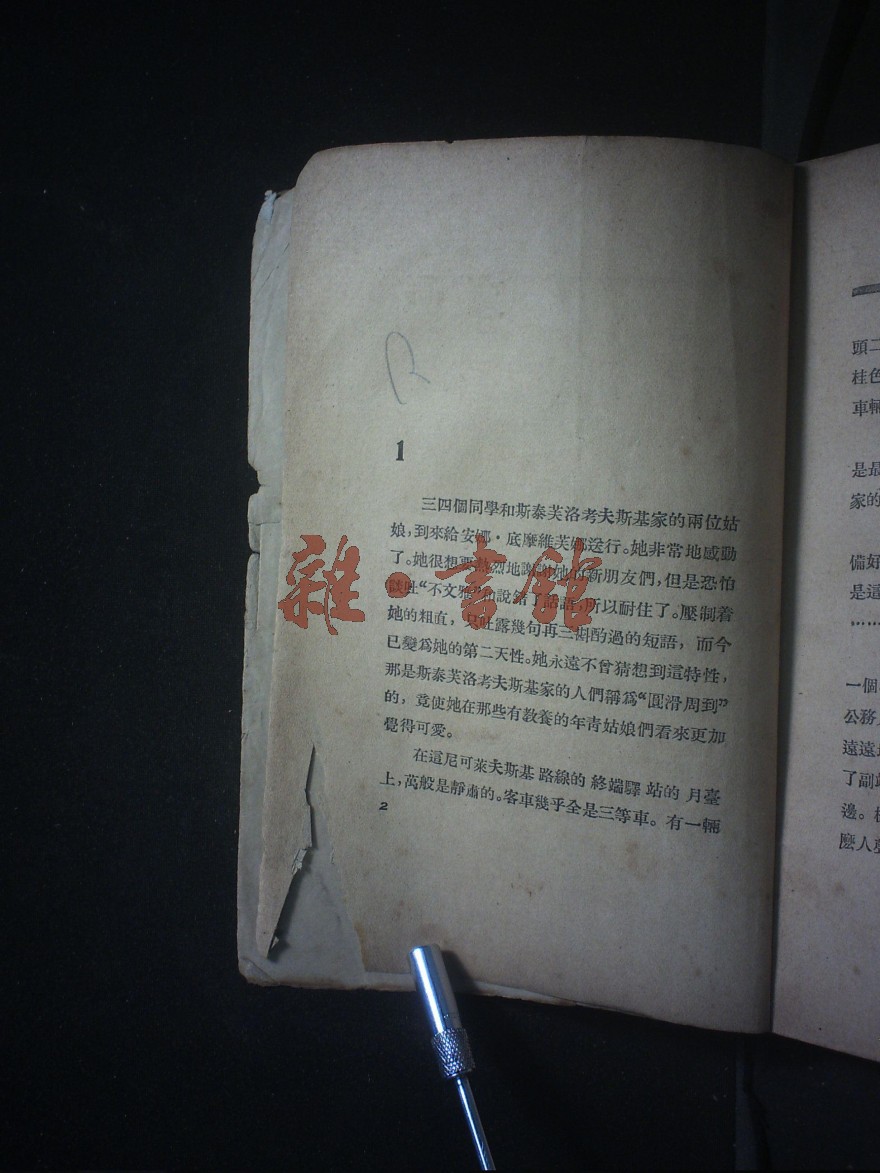 1
三四個同學和斯泰芙洛考夫斯基家的兩位姑
娘，到來給安娜·底摩維芙娜送行。她非常地感動
了。她很想要熱烈地謝謝她的新朋友們，但是恐怕
談吐“不文雅”和說錯了話語，所以耐住了。壓制着
她的粗直，只吐露幾句再三斟酌過的短語，而今
已變爲她的第二天性。她永遠不曾猜想到這特性，
那是斯泰芙洛考夫斯基家的人們稱爲“圓滑周到”
的，竟使她在那些有教養的年青姑娘們看來更加
覺得可愛。
在這尼可萊夫斯基路線的終端驛站的月臺
上，萬般是靜肅的。客車幾乎全是三等車。有一輛
2
雜·書館
頭二
桂色
車輛
是最
家的
備好
是這
……
一個
公務
遠遠
了副
邊。
麽人